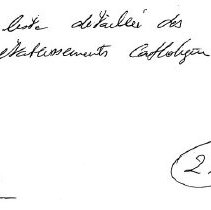 liste détaillée des
établissements catholiques
2